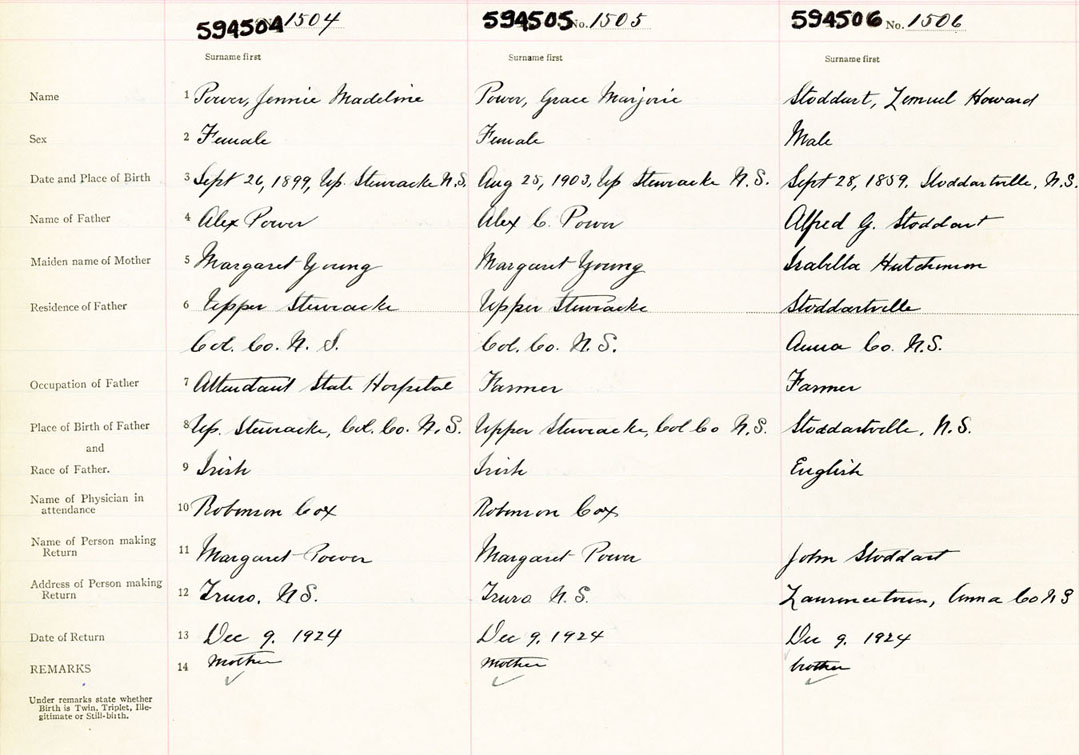 594504 No. 1504 594505 No. 1505 594506 No. 1506
Surname first Surname first Surname first
Name 1 Power, Jennie Madeline Power, Grace Marjorie Stoddart, Lemuel Howard
Sex 2 Female Female Male
Date and Place of Birth 3 Sept 26, 1899, Up. Stewiacke N.S. Aug 25, 1903, Up Stewiacke N.S. Sept 28, 1859. Stoddartville, N.S.
Name of Father 4 Alex Power Alex C. Power Alfred G. Stoddart
Maiden name of Mother 5 Margaret Young Margaret Young Isabilla Hutchinson
Residence of Father 6 Upper Stewiacke Upper Stewiacke Stoddartville
Col. Co. N. S. Col. Co. N.S. Anna Co. N.S.
Occupation of Father 7 Attendant State Hospital Farmer Farmer
Place of Birth of Father 8 Up. Stewiacke, Col. Co. N.S. Upper Stewiacke, Col Co N.S. Stoddartville, N.S.
and
Race of Father. 9 Irish Irish English
Name of Physician in
attendance 10 Robinson Cox Robinson Cox
Name of Person making
Return 11 Margaret Power Margaret Power John Stoddart
Address of Person making
Return 12 Truro. N.S. Truro N.S. Lawrencetown, Anna Co N S
Date of Return 13 Dec 9, 1924 Dec 9, 1924 Dec 9, 1924
REMARKS 14 Mother Mother brother
Under remarks state whether
Birth is Twin, Triplet, Ille-
gitimate or Still-birth.